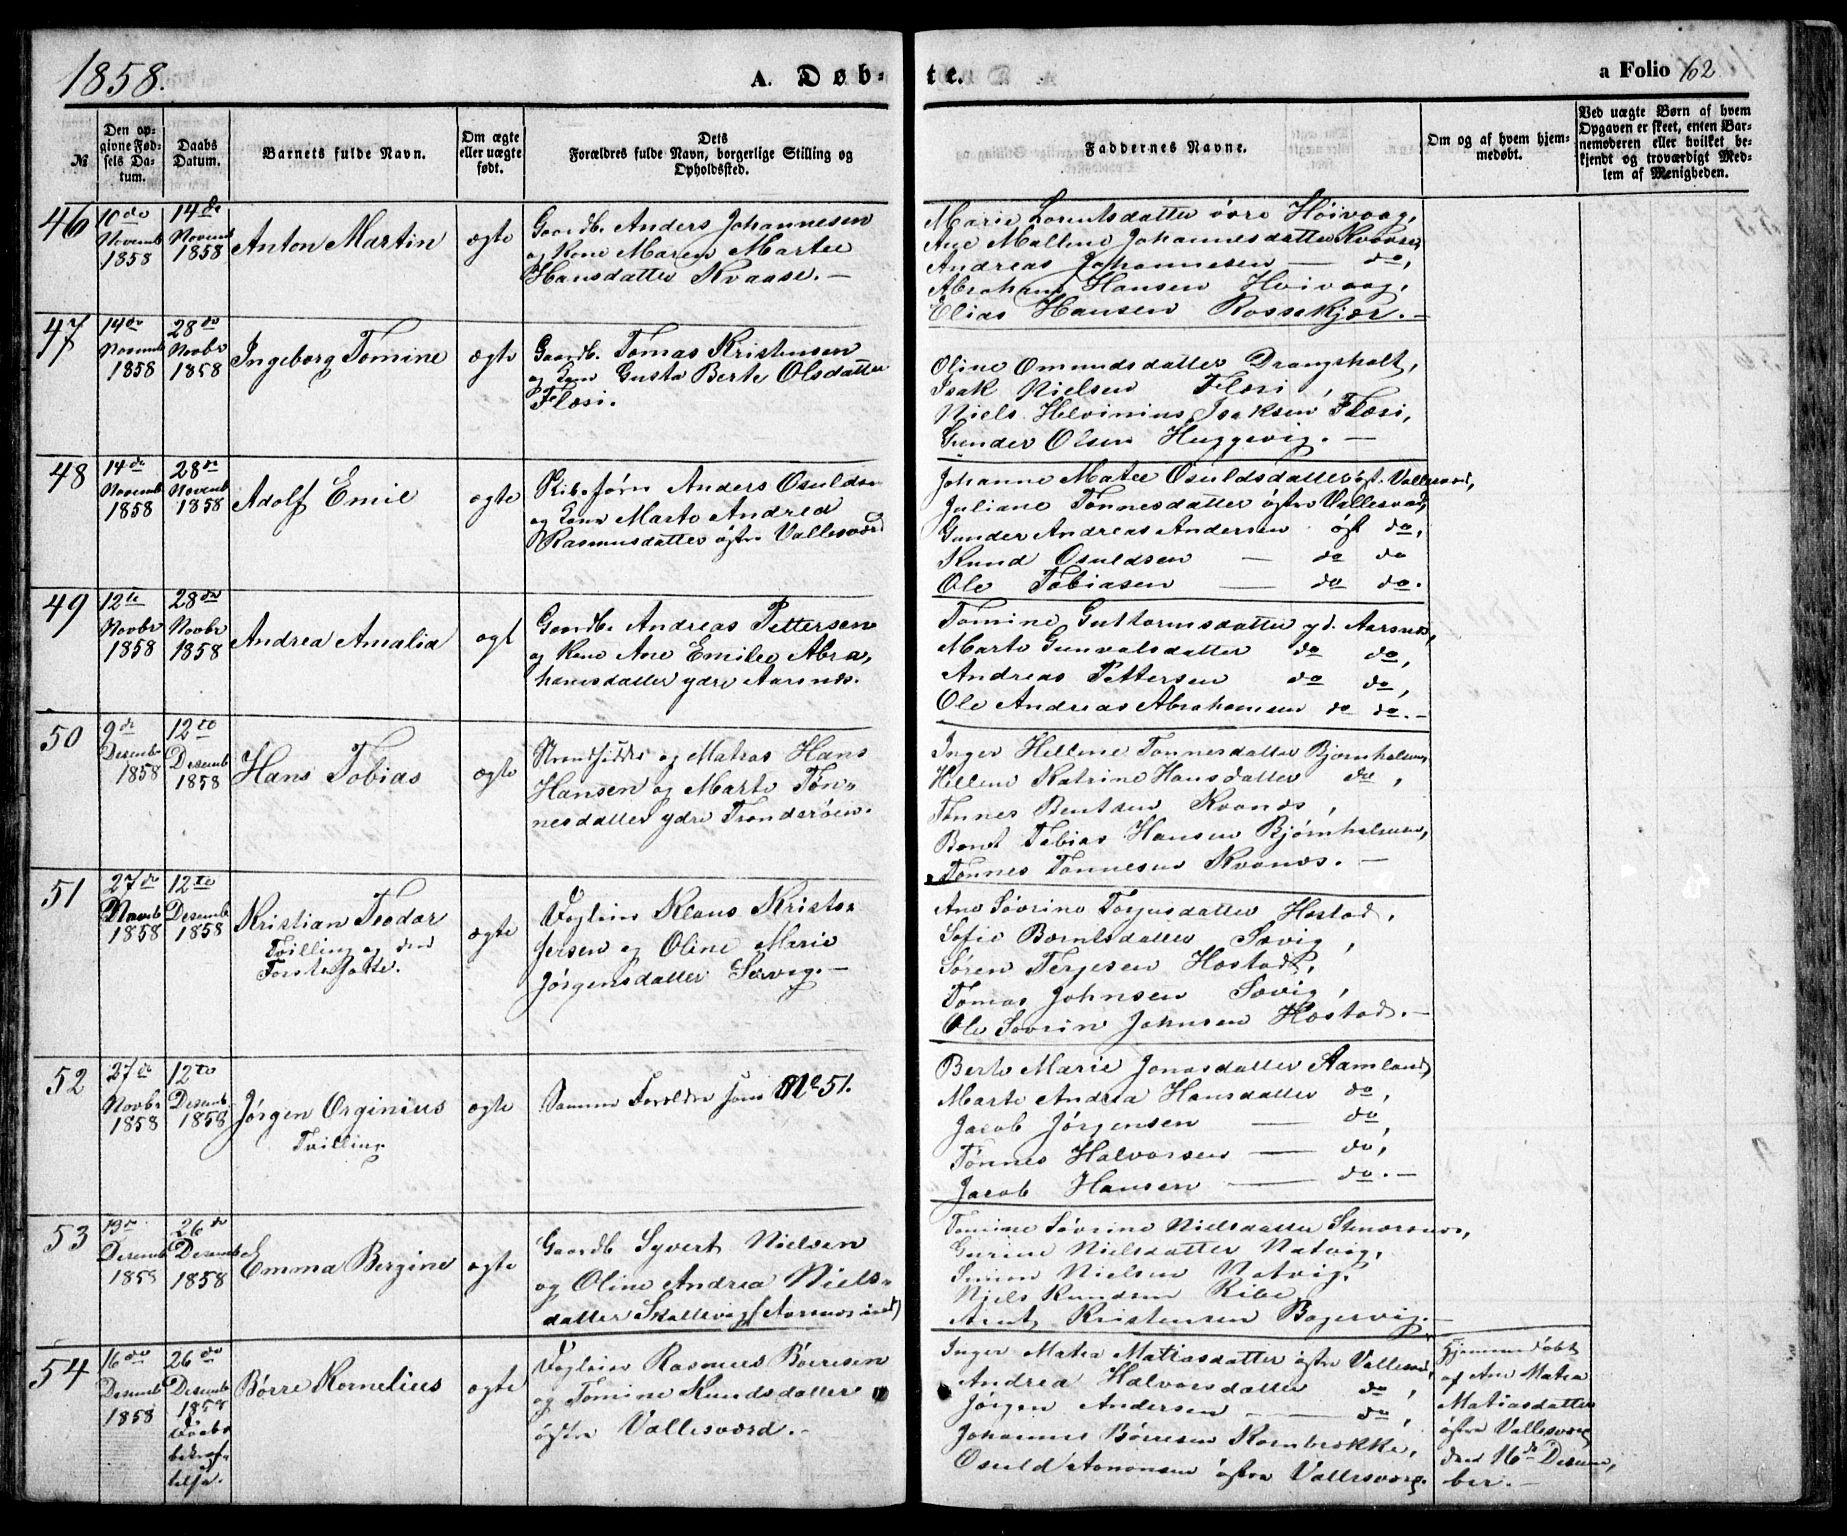 1858.
A. Døb-
te.
a Folio 62
№
Den op-
givne Fød-
sels Da-
tum.
Daabs
Datum.
Barnets fulde Navn.
Om ægte
eller uægte
født.
Dets
Forældres fulde Navn, borgerlige Stilling og
Opholdssted.
Faddernes Navne.
Om og af hvem hjem-
medøbt.
Ved uægte Børn af hvem
Opgaven er skeet, enten Bar-
nemoderen eller hvilket be-
kjendt og troværdigt Med-
lem af Menigheden.
46
10de
Novemb
1858
14de
Novemb
1858
Anton Martin
ægte
Gaardb. Anders Johannesen
og Kone Maren Martee
Hansdatter Kvaase. —
Marie Lorentsdatter övre Höivaag,
Ane Mallene Johannesdatter Kvaase,
Andreas Johannesen — do,
Abraham Hansen Höivaag,
Elias Hansen Rossekjær. —
47
14de
Novemb
1858
28de
Novbr
1858
Ingeborg Tomine
ægte
Gaardb. Tomas Kristensen
og Kone Gusta Berte Olsdatter
Flæsi.
Oline Omundsdatter Drangsholt,
Isak Nielsen Flæsi,
Niels Helvinius Isaksen Flæsi,
Gunder Olsen Huggevig. —
48
14de
Novemb
1858
28de
Novemb
1858
Adolf Emil
ægte
Anders Osulds
og Kone Marte Andrea
Rasmusdatter östre Vallesværd
Johanne Matee Osuldsdatter öst. Vallesværd,
Juliane Tönnesdatter östre Vallesværd,
Gunder Andreas Andersen öst do,
Knud Osuldsen — do do
Ole Tobiasen — do do.
49
12te
Novbr
1858
28de
Novbr
1858
Andrea Amalia
ægt
Gaardb. Andreas Pettersen
og Kone Ane Emilie Abra,
hamsdatter ydre Aarsnes.
Tomine Guttormsdatter yd. Aarsnes,
Marte Gunvalsdatter do do,
Andreas Pettersen do do,
Ole Andreas Abrahamsen do do. —
50
9de
Desemb
1858
12te
Desemb
1858
Hans Tobias
ægte
Strandsidder og Matros Hans
Hansen og Marte Tøn-
nesdatter ydre Trondsrøen.
Inger Hellene Tönnesdatter Bjornholmen
Hellene Katrine Hansdatter do,
Tönnes Bentsen Kvanes,
Bent Tobias Hansen Bjørnholmen,
Tönnes Tönnesen Kvanes. —
51
27de
Novmb
1858
12te
Desemb
1858
Kristian Teodor
Tvilling og den
Förstefödte.
ægte
Klaus Kristo-
fersen og Oline Marie
Jørgensdatter Sævig. —
Ane Sövrine Torjusdatter Hæstad,
Sofie Berntsdatter Sævig,
Søren Terjesen Hæstad,
Tomas Johnsen Sævig,
Ole Sövrin Johnsen Hæstad. —
52
27de
Novbr
1858
12te
Desemb
1858
Jørgen Orginius
Tvilling
ægte
Samme Foreldre som № 51.
Berte Marie Jonasdatter Aamland,
Marte Andrea Hansdatter do,
Jacob Jørgensen — do,
Tönnes Halvorsen — do,
Jacob Hansen — do. —
53
13de
Desemb
1858
26de
Desemb
1858
Emma Bergine
ægte
Gaardb Syvert Nielsen
og Oline Andrea Niels-
datter Skallevig
Tomine Sövrine Nielsdatter Stenersnes,
Gurine Nielsdatter Natvig,
Nielsen Natvig,
Niels Knudsen Ribe,
Kristensen Bagervig. —
54
16de
Desemb
1858
26de
Desemb
1858
Daabs
bekræf-
telse.
Börre Kornelius
ægte
Rasmus Börresen
og Tomine Knudsdatter
östre Vallesværd. —
Inger Matea Matiasdatter östre Vallesværd,
Andrea Halvorsdatter do,
Jörgen Andersen — do,
Johannes Börresen Kornbrække,
Osuld Aanonsen östre Vallesværd.
Hjemmedöbt
af Ane Matea
Matiasdatter
östre Vallesværd
den 16de Desem,
ber. —